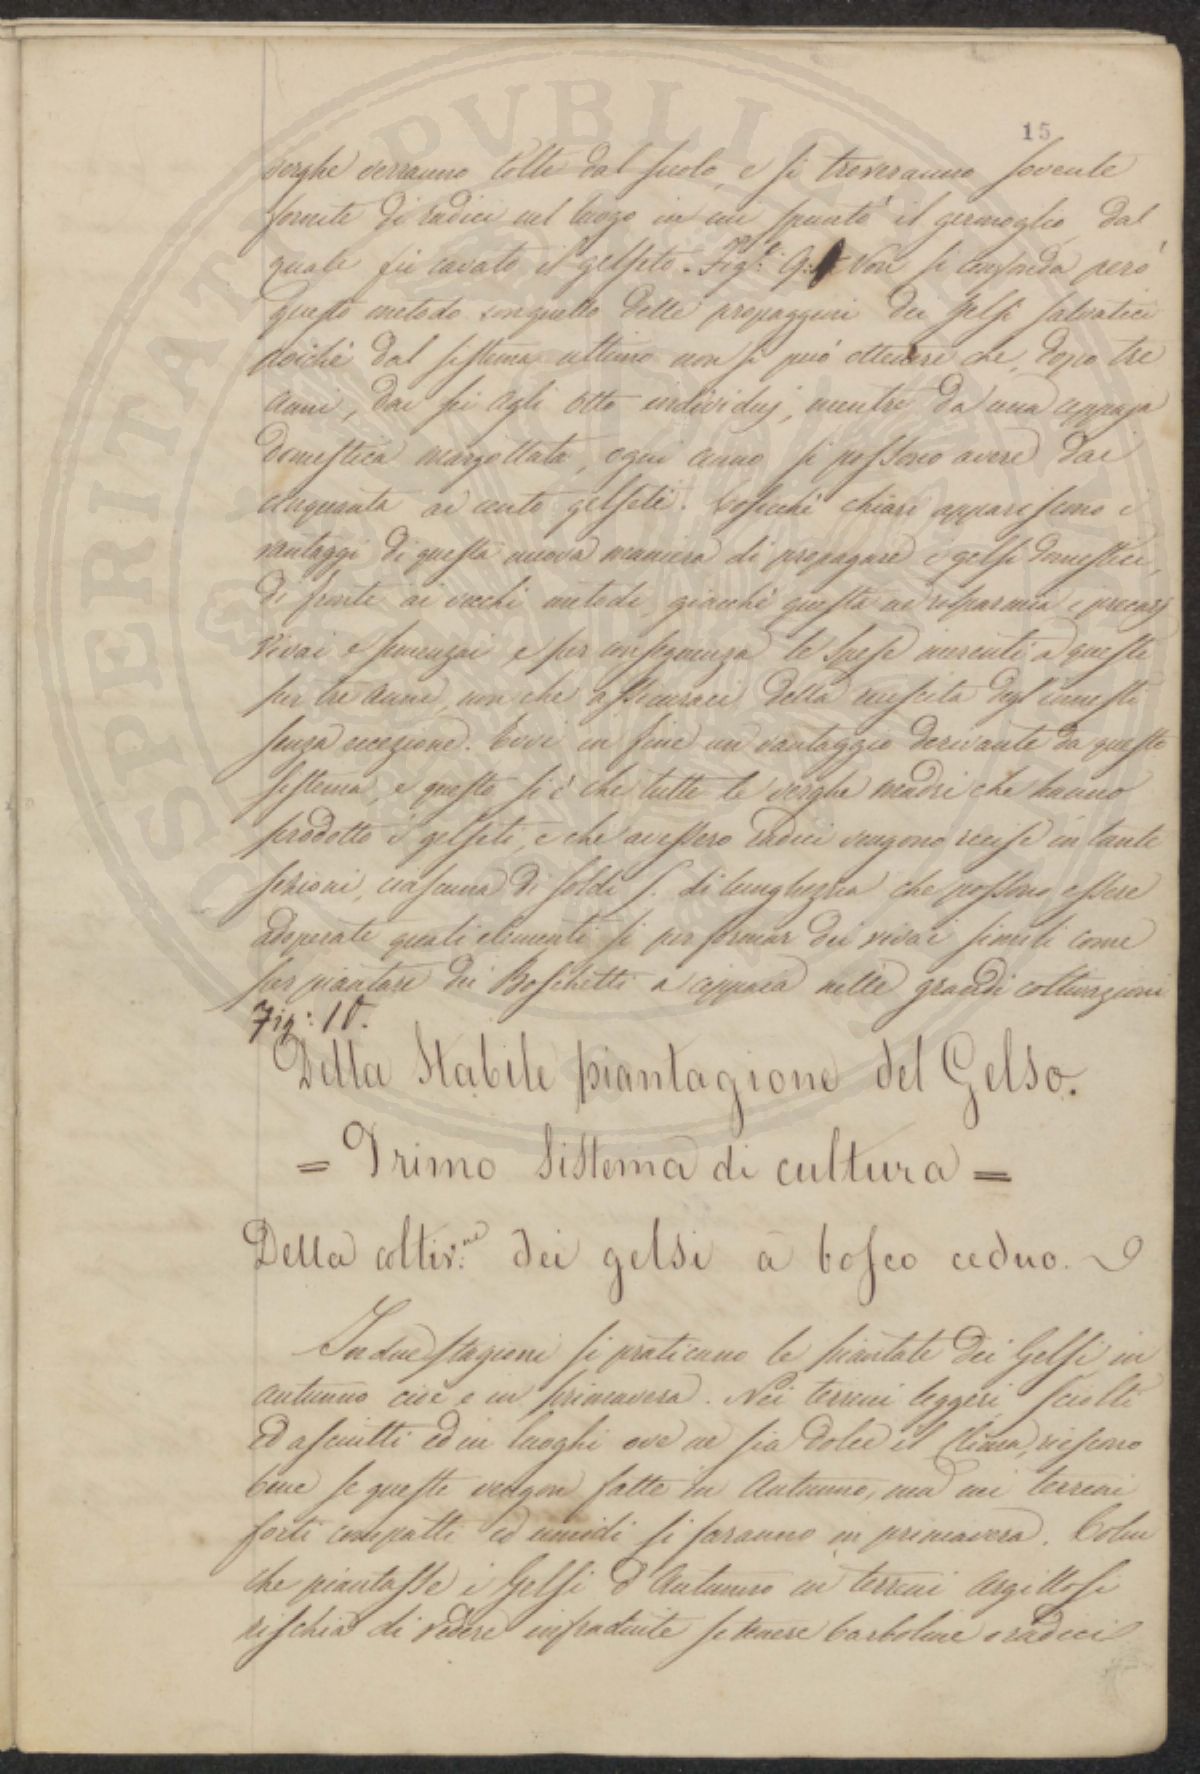 15
verghe verranno tolte dal suolo, e si troveranno sovente
fornite di radici nel luogo in cui spuntò il germoglio, dal
quale fù cavato il gelseto. Fig. 9: Non si confonda però
questo metodo con quello delle propaggini dei gelsi salvatici
poiché dal sistema ultimo non si può ottenere che, dopo tre
anni, dai sei agli otto individuj, mentre da una ceppaja
domestica margottata, ogni anno si possono avere dai
cinquanta ai cento gelseti. Cosicché chiari appariscono i
vantaggi di questa nuova maniera di propagare i gelsi domestici,
di fronte ai vecchi metodi, giacché questa ne risparmia i precarj
vivai e semenzai e per conseguenza le spese inerenti a queste
per tre anni, non che assicuraci della riuscita degl'innesti
senza eccezione. Evvi in fine un vantaggio derivante da questo
sistema, e questo si è che tutte le verghe madri che hanno
prodotto i gelseti, e che avessero radici vengono recise in tante
sezioni, ciascuna di soldi 5. di lunghezza che possono essere
adoperate quali elementi sì per formar dei vivai simili come
per piantare dei Boschetti a ceppaia nelle grandi coltivazioni
Fig: 10.
Della Stabile piantagione del Gelso.
= Primo Sistema di cultura =
Della coltiv.ne dei gelsi a bosco ceduo.
In due stagioni si praticano le piantate dei Gelsi in
autunno cioè e in primavera. Nei terreni leggeri, sciolti
ed asciutti ed in luoghi ove ne sia dolce il Clima, riescono
bene se queste vengon fatte in Autunno, ma nei terreni
forti compatti ed umidi si faranno in primavera. Colui
che piantasse i Gelsi d'Autunno in terreni argillosi
rischia di vedere infradicite le tenere barboline o radici